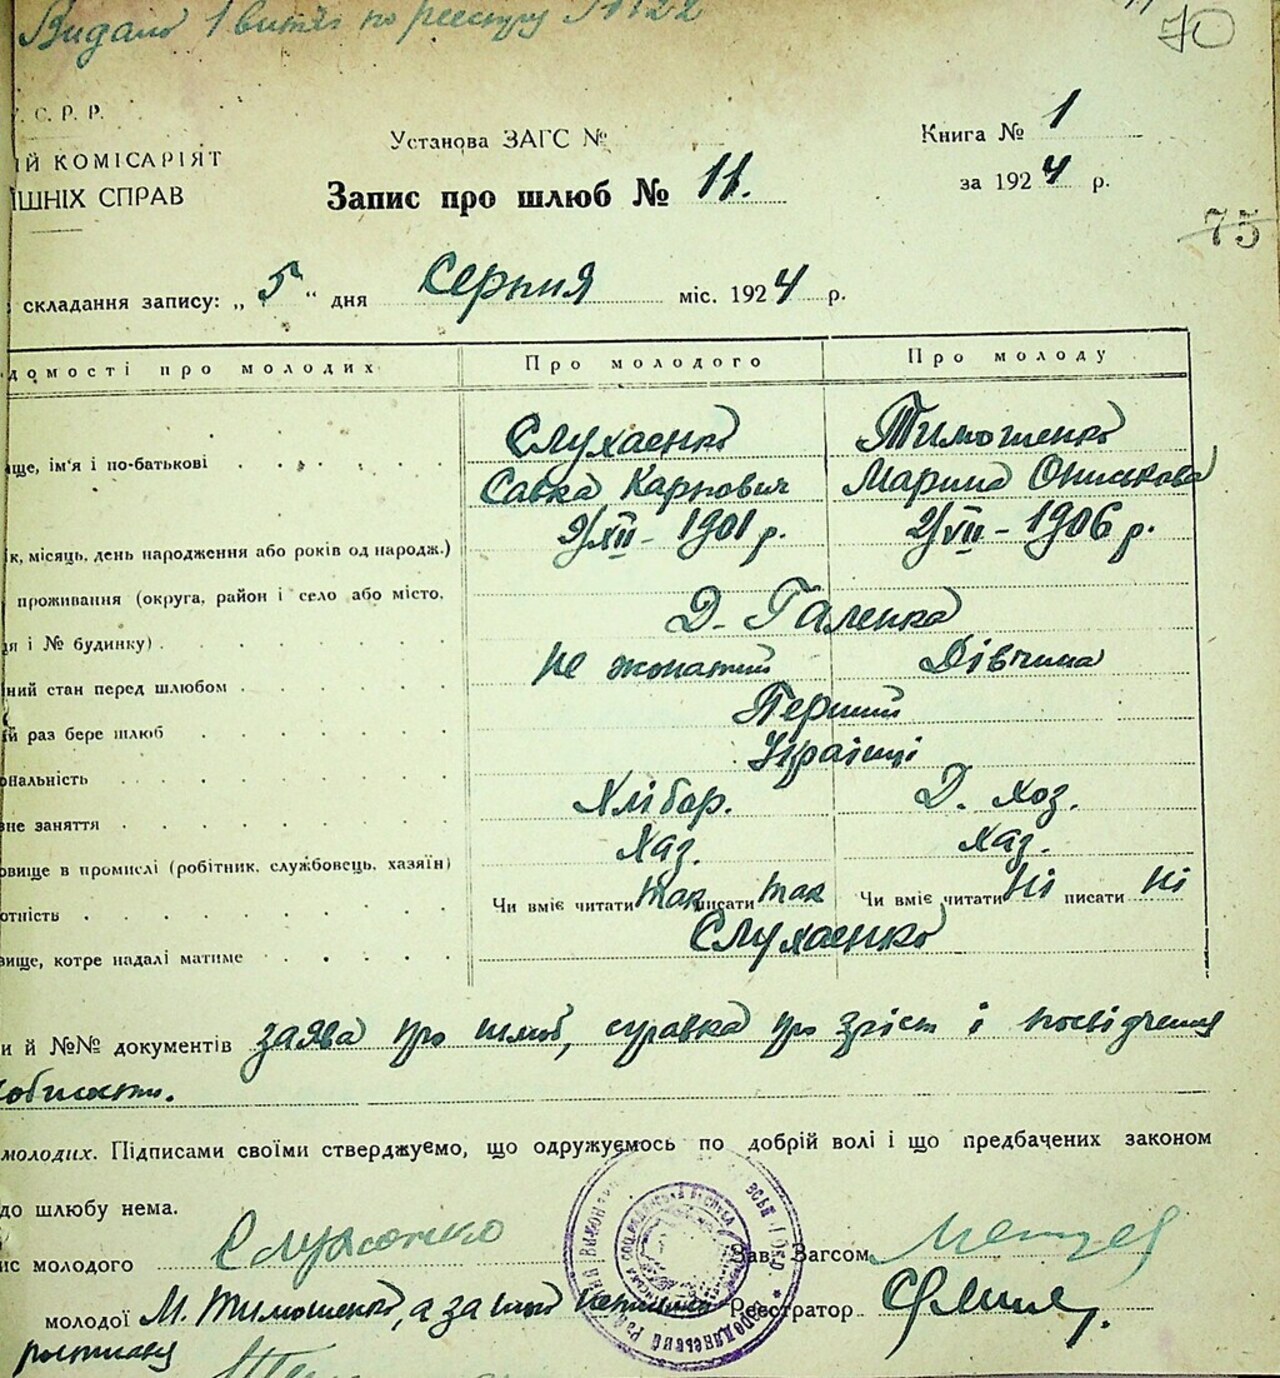 Видано 1 витяг по реестру № 122
70
У. С. Р. Р.
ИЙ КОМІСАРІЯТ
ІШНІХ СПРАВ
Установа ЗАГС №
Книга № 1
Запис про шлюб № 11.
за 1924 р.
75
складання запису: „5“ дня Серпня міс. 1924 р.
домості про молодих
Про молодого
Про молоду
ще, ім'я і по-батькові
Слухаенко
Савка Карпович
Тимошенко
Марина Ониськова
ік, місяць, день народження або років од народж.)
9/XII - 1901 р.
2/VII - 1906 р.
проживання (округа, район і село або місто,
ця і № будинку)
Д. Галенка
ний стан перед шлюбом
не жонатий
Дівчина
ий раз бере шлюб
Перший
ональність
Українці
вне заняття
Хлібор.
Д. хоз.
овище в промислі (робітник, службовець, хазяїн)
Хаз.
Хаз.
отність
Чи вміє читати так писати так
Чи вміє читати Ні писати Ні
вище, котре надалі матиме
Слухаенко
и й №№ документів заява про шлюб, справка про зріст і посвідчення
особистости.
молодих. Підписами своїми стверджуємо, що одружуємось по добрій волі і що предбачених законом
до шлюбу нема.
ис молодого Слухаенко
Зав. Загсом
молодої М. Тимошенко, а за
Реєстратор
росписався